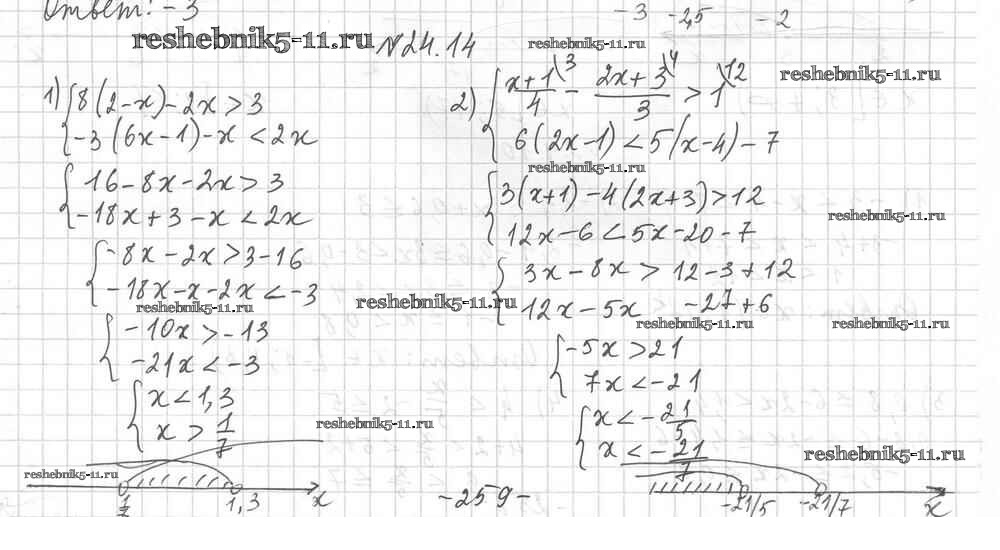 Ответ: -3
-3 -2,5 -2
reshebnik5-11.ru №24.14 reshebnik5-11.ru
reshebnik5-11.ru
1) { 8(2-x)-2x>3
-3(6x-1)-x<2x
{ 16-8x-2x>3
-18x+3-x<2x
{ -8x-2x>3-16
-18x-x-2x<-3
reshebnik5-11.ru
{ -10x>-13
-21x<-3
{ x<1,3
x>1/7
reshebnik5-11.ru
reshebnik5-11.ru
1/7 1,3 x
2) { (x+1)/4 \3 - (2x+3)/3 \4 > 1 \12
6(2x-1)<5(x-4)-7
reshebnik5-11.ru
{ 3(x+1)-4(2x+3)>12
reshebnik5-11.ru
12x-6<5x-20-7
{ 3x-8x>12-3+12
reshebnik5-11.ru
12x-5x -27+6
reshebnik5-11.ru reshebnik5-11.ru
{ -5x>21
7x<-21
{ x<-21/5
x<-21/7
reshebnik5-11.ru
-21/5 -21/7 x
-259-